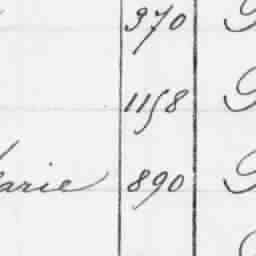 370
1158
arie 890